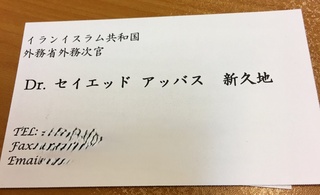 イランイスラム共和国
外務省外務次官
Dr. セイエッド アッバス 新久地
TEL:
Fax:
Email: